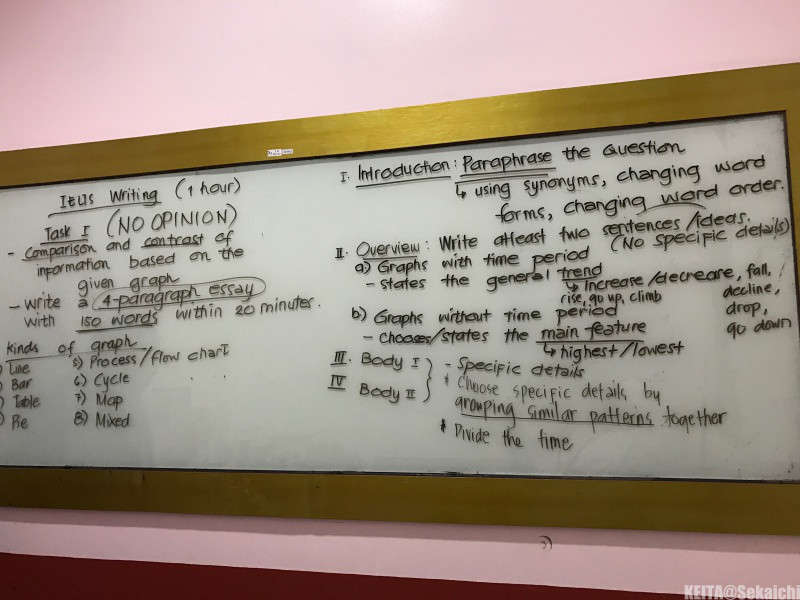 IELTS Writing (1 hour)
Task I (NO OPINION)
- Comparison and contrast of
information based on the
given graph
- Write a 4-paragraph essay
with 150 words within 20 minutes.
Kinds of graph
) Line
) Bar
) Table
) Pie
5) Process/flow chart
6) Cycle
7) Map
8) Mixed
I. Introduction: Paraphrase the Question
↳ using synonyms, changing word
forms, changing word order.
II. Overview: Write atleast two sentences/ideas.
(No specific details)
a) Graphs with time period
- states the general trend
↳ Increase/decrease, fall,
rise, go up, climb
decline,
drop,
go down
b) Graphs without time period
- chooses/states the main feature
↳ highest/lowest
III. Body I
IV Body II
- Specific details
* Choose specific details by
grouping similar patterns together
* Divide the time
KEITA@Sekaichi